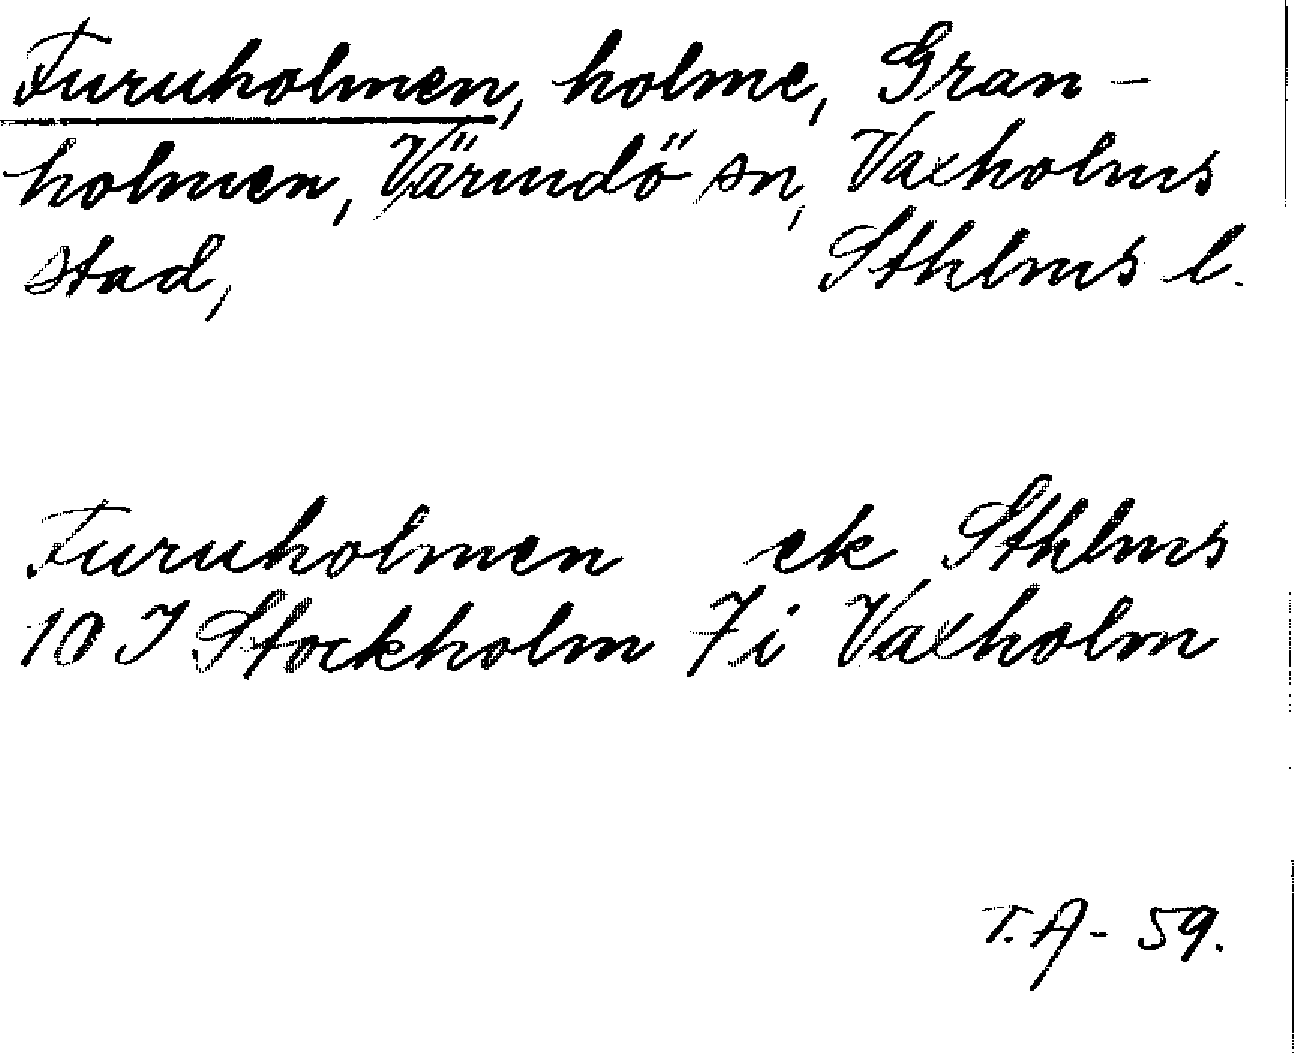 Furuholmen, holme, Gran-
holmen, Värmdö sn, Vaxholms
stad, Sthlms l.
Furuholmen ek Sthlms
10 I Stockholm 7 i Vaxholm
T. A - 59.